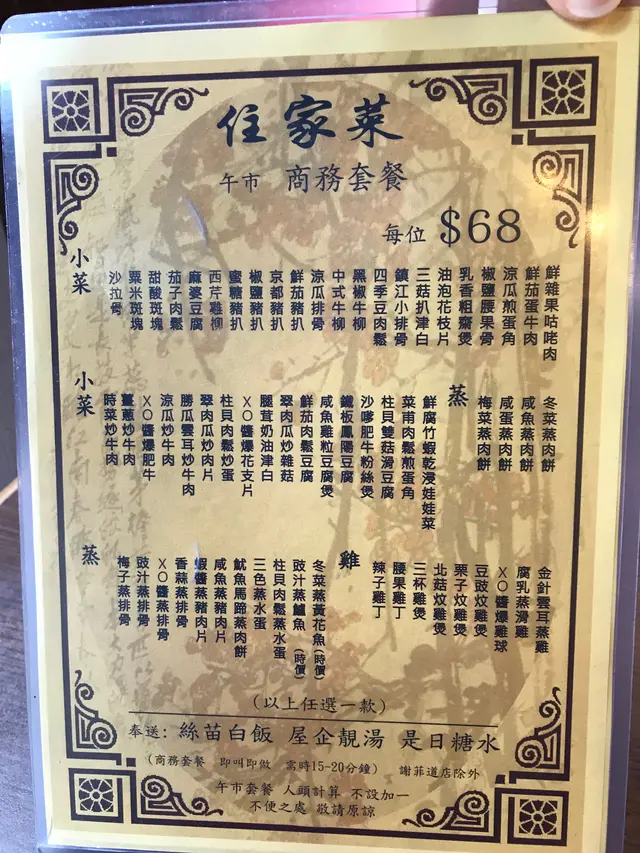 住家菜
午市 商務套餐
每位 $68
小菜
鮮雜果咕咾肉
鮮茄蛋牛肉
涼瓜煎蛋角
椒鹽腰果骨
乳香粗齋煲
油泡花枝片
三菇扒津白
鎮江小排骨
四季豆肉鬆
黑椒牛柳
中式牛柳
涼瓜排骨
鮮茄豬扒
京都豬扒
椒鹽豬扒
蜜糖豬扒
西芹雞柳
麻婆豆腐
茄子肉鬆
甜酸斑塊
粟米斑塊
沙拉骨
蒸
冬菜蒸肉餅
咸魚蒸肉餅
咸蛋蒸肉餅
梅菜蒸肉餅
小菜
鮮腐竹蝦乾浸娃娃菜
菜甫肉鬆煎蛋角
柱貝雙菇滑豆腐
沙嗲肥牛粉絲煲
鐵板鳳陽豆腐
咸魚雞粒豆腐煲
鮮茄肉鬆豆腐
翠肉瓜炒雜菇
腿茸奶油津白
XO醬爆花支片
柱貝肉鬆炒蛋
翠肉瓜炒肉片
勝瓜雲耳炒牛肉
涼瓜炒牛肉
XO醬爆肥牛
薑蔥炒牛肉
時菜炒牛肉
雞
金針雲耳蒸雞
腐乳蒸滑雞
XO醬爆雞球
豆豉炆雞煲
栗子炆雞煲
北菇炆雞煲
三杯雞煲
腰果雞丁
辣子雞丁
蒸
冬菜蒸黃花魚(時價)
豉汁蒸鱸魚(時價)
柱貝肉鬆蒸水蛋
三色蒸水蛋
魷魚馬蹄蒸肉餅
咸魚蒸豬肉片
蝦醬蒸豬肉片
香蒜蒸排骨
XO醬蒸排骨
豉汁蒸排骨
梅子蒸排骨
(以上任選一款)
奉送: 絲苗白飯 屋企靚湯 是日糖水
(商務套餐 即叫即做 需時15-20分鐘) 謝菲道店除外
午市套餐 人頭計算 不設加一
不便之處 敬請原諒